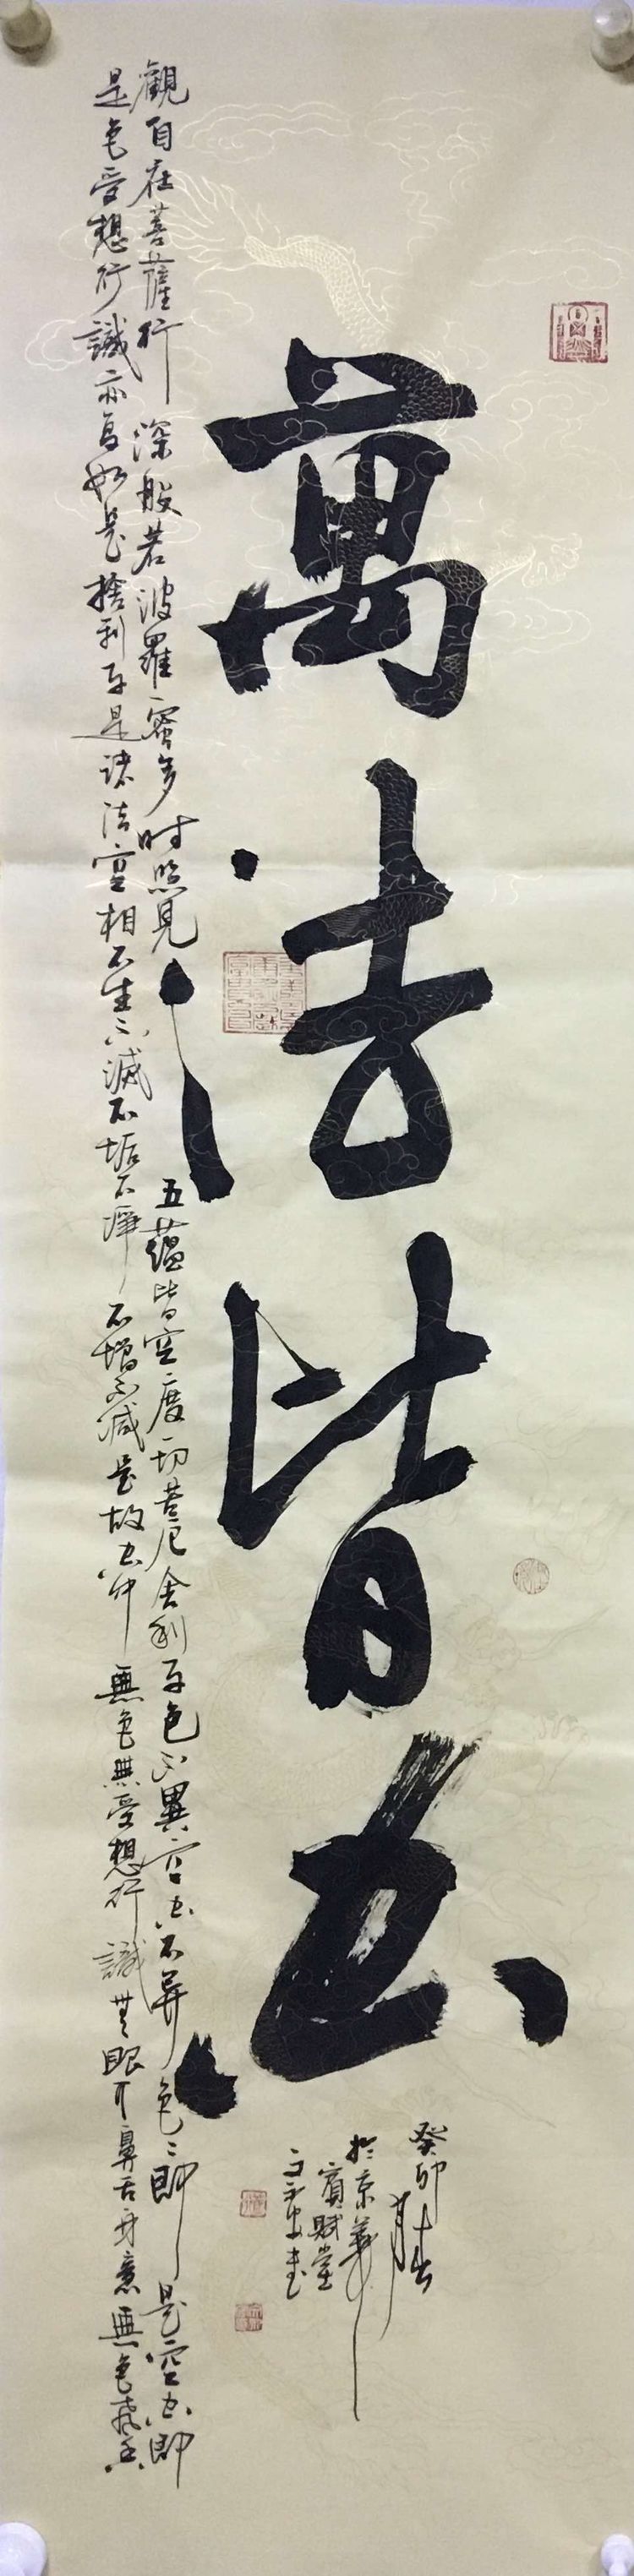 萬法皆空
觀自在菩薩行深般若波羅蜜多時照見五蘊皆空度一切苦厄舍利子色不異空空不異色色即是空空即
是色受想行識亦復如是捨利子是諸法空相不生不滅不垢不淨不增不減是故空中無色無受想行識無眼耳鼻舌身意無色聲香
癸卯春月
於京華
寶賦堂